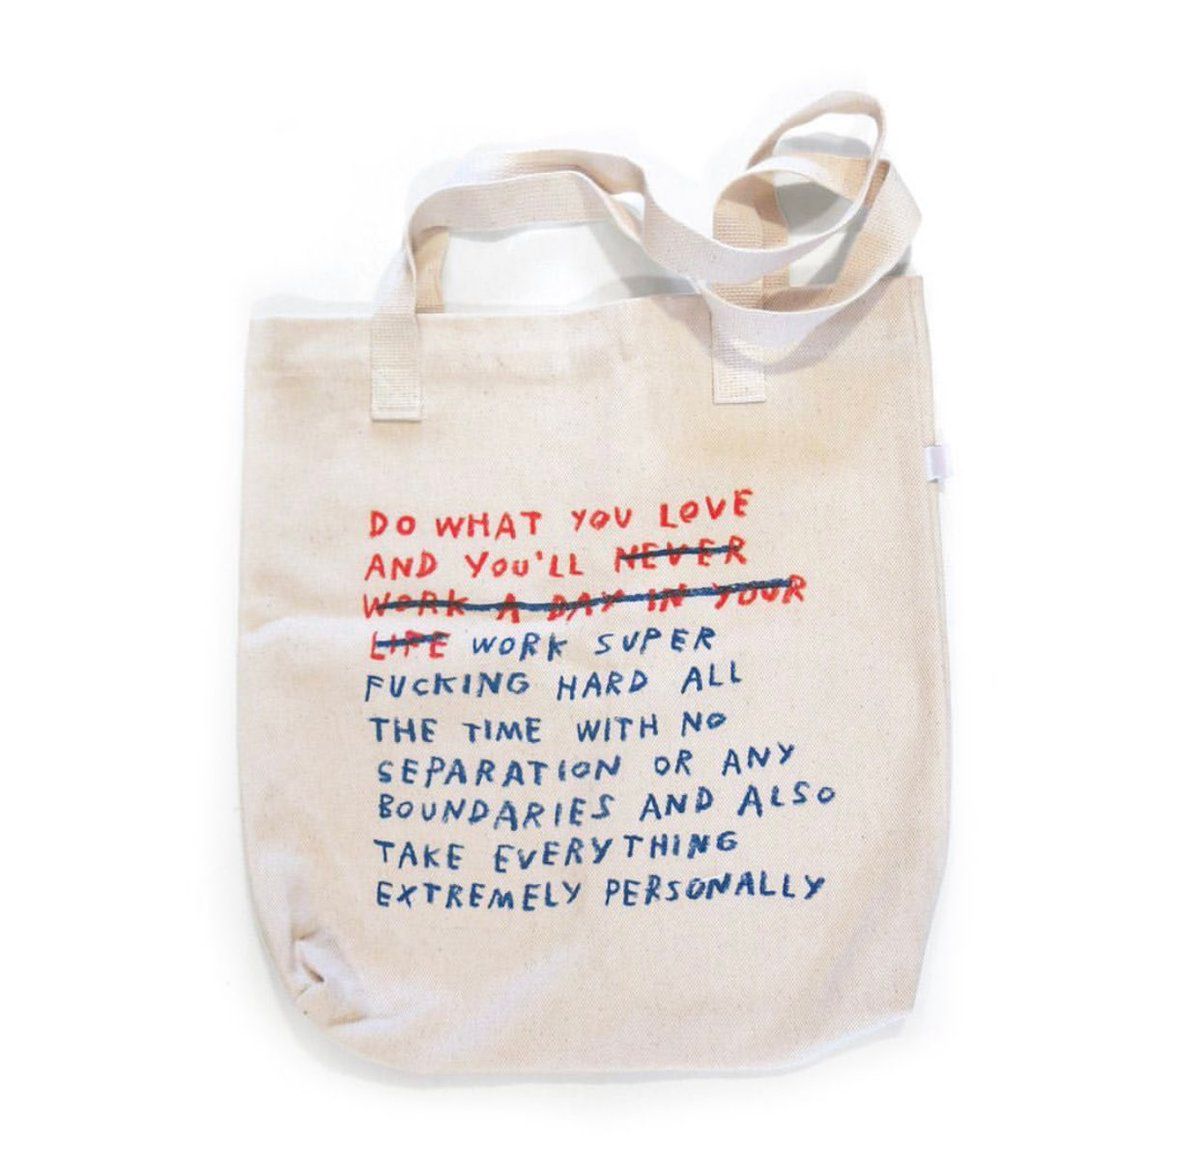 DO WHAT YOU LOVE
AND YOU'LL NEVER
WORK A DAY IN YOUR
LIFE WORK SUPER
FUCKING HARD ALL
THE TIME WITH NO
SEPARATION OR ANY
BOUNDARIES AND ALSO
TAKE EVERYTHING
EXTREMELY PERSONALLY